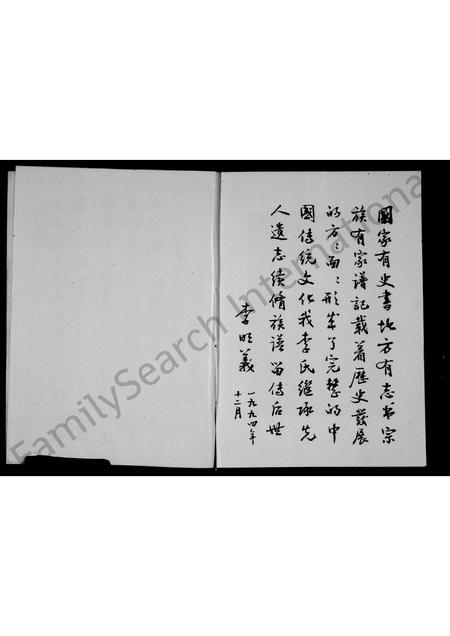 國家有史書地方有志书宗
族有家谱記載着歷史發展
的方々面々形成了完整的中
國传統文化我李氏继承先
人遺志续脩族谱留传后世
李明義
一九九四年
十二月
FamilySearch International